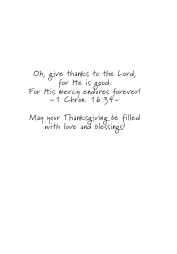 Oh, give thanks to the Lord,
for He is good.
For His mercy endures forever!
~1 Chron. 16:34~
May your Thanksgiving be filled
with love and blessings!